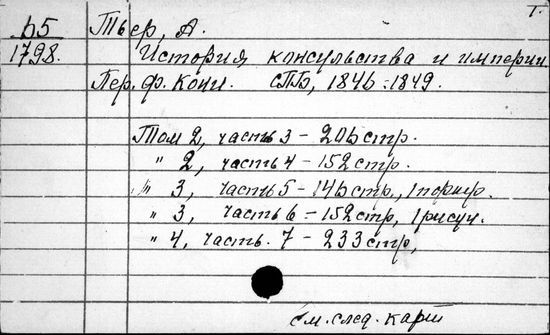 1.
Б5 Тьер, А.
1798. История консульства и империи
Пер. Ф. Кони. СПБ, 1846-1849.
Том 2, часть 3 - 206 стр.
" 2, часть 4 - 152 стр.
" 3, часть 5 - 146 стр., 1 портр.
" 3, часть 6 - 152 стр, 1 рисун.
" 4, часть. 7 - 233 стр,
см. след. карт